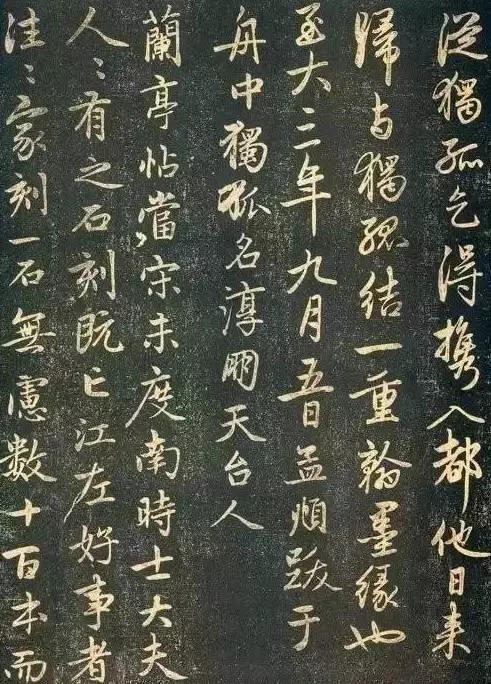 從獨孤乞得攜入都他日来
歸与獨孤結一重翰墨緣也
至大三年九月五日孟頫跋于
舟中獨孤名淳朋天台人
蘭亭帖當宋未度南時士大夫
人〻有之石刻既亡江左好事者
往〻家刻一石無慮数十百本而